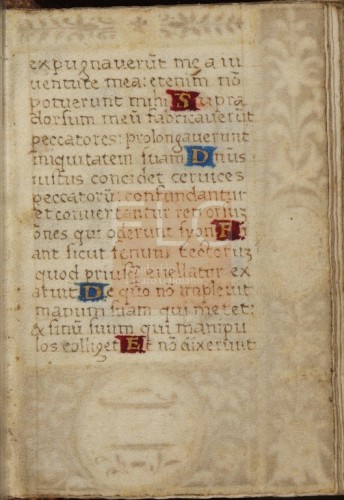 expugnauerūt me a iu
uentute mea: etenim nō
potuerunt mihi Supra
dorsum meū fabricauerunt
peccatores: prolongauerunt
iniquitatem suam Dn̄us
iustus concidet ceruices
peccatorū: confundantur
et conuertantur retrorsū
ōnes qui oderunt syon Fi
ant sicut fenum tectorum
quod priusq̄ euellatur ex
aruit De quo nō impleuit
manum suam qui metet:
& sinū suum qui manipu
los colliget Et nō dixerunt